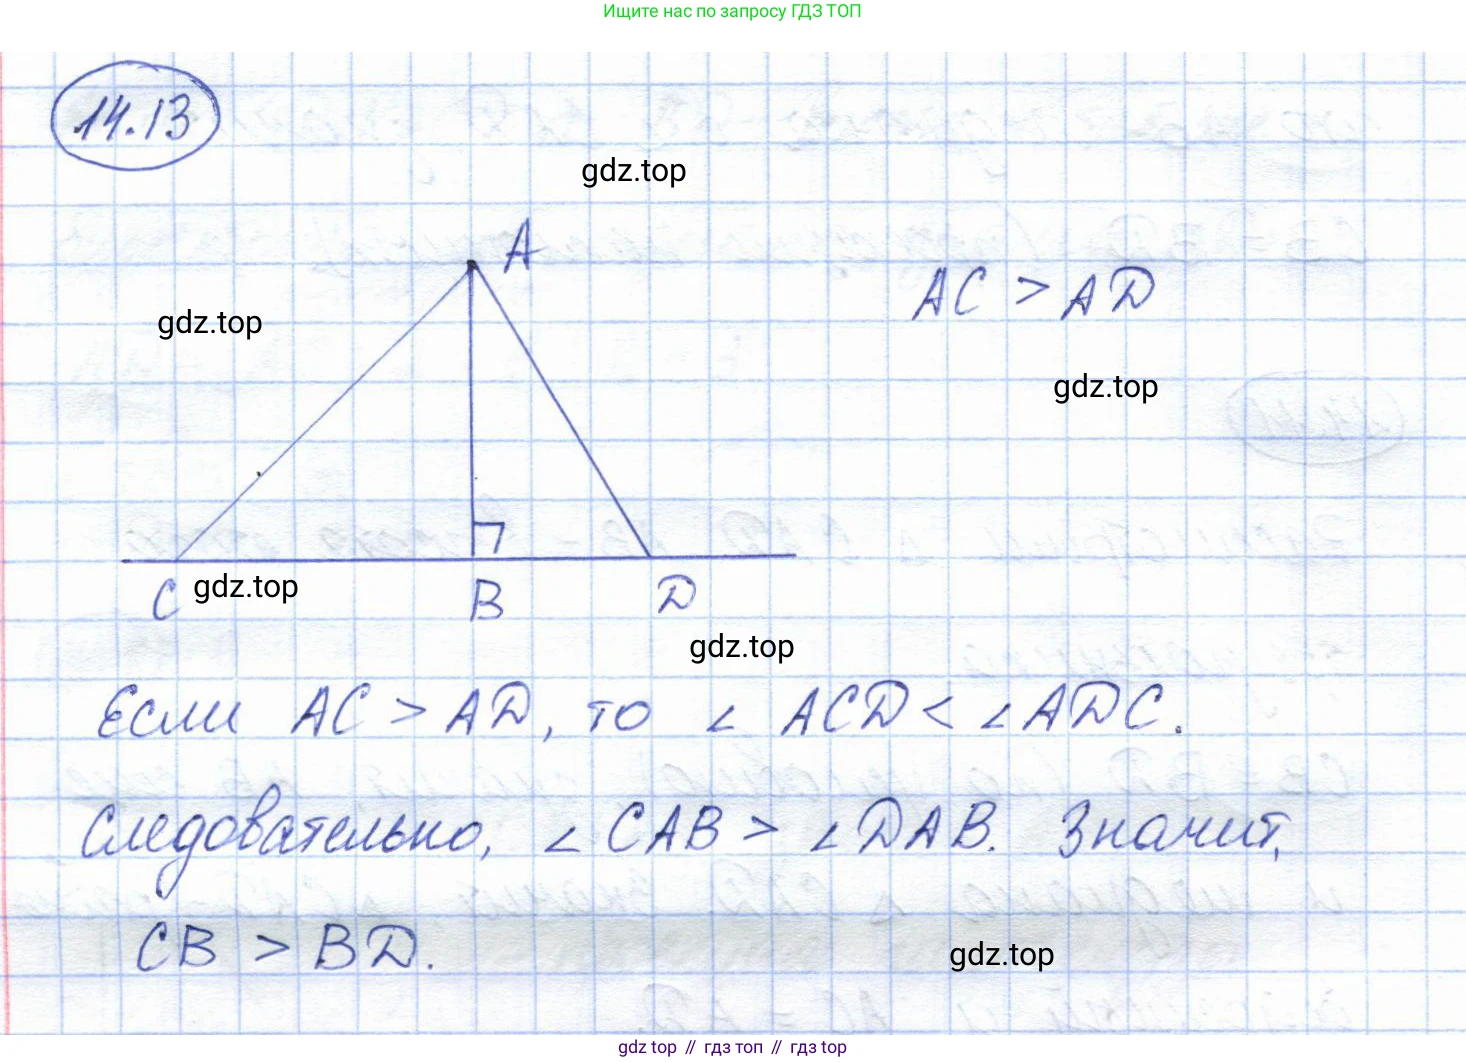 Ищите нас по запросу ГДЗ ТОП
14.13
gdz.top
A
AC > AD
gdz.top
gdz.top
C
gdz.top
B
D
gdz.top
Если AC > AD, то ∠ ACD < ∠ ADC.
Следовательно, ∠ CAB > ∠ DAB. Значит,
CB > BD.
gdz.top
gdz top // гдз топ // гдз top